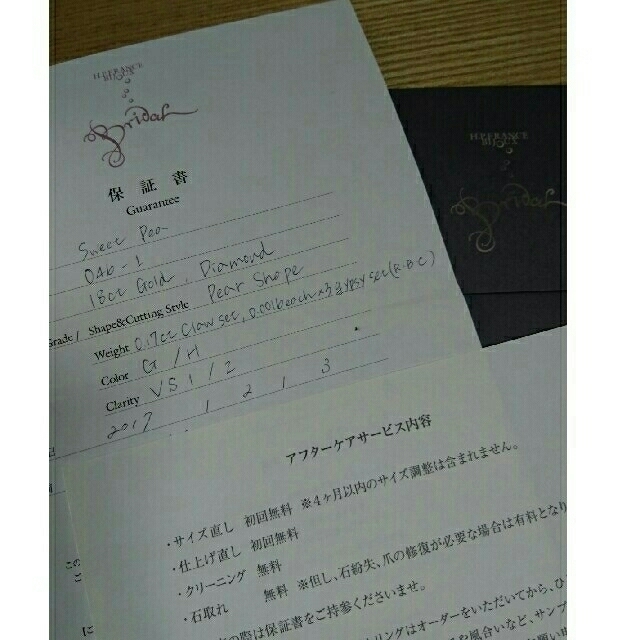 H.P.FRANCE
BIJOUX
Bridal
保証書
Guarantee
Sweet Pea
OAK-1
18ct Gold, Diamond
Grade / Shape&Cutting Style Pear Shape
Weight 0.17ct Claw set, 0.001beach×3 gypsy set (R.B.C)
Color G / H
Clarity VS 1 / 2
2017 1 2 1 3
H.P.FRANCE
BIJOUX
Bridal
アフターケアサービス内容
・サイズ直し 初回無料 ※4ヶ月以内のサイズ調整は含まれません。
・仕上げ直し 初回無料
・クリーニング 無料
・石取れ 無料 ※但し、石紛失、爪の修復が必要な場合は有料となり
の際は保証書をご持参くださいませ。
リングはオーダーをいただいてから、ひ
や風合いなど、サンプ